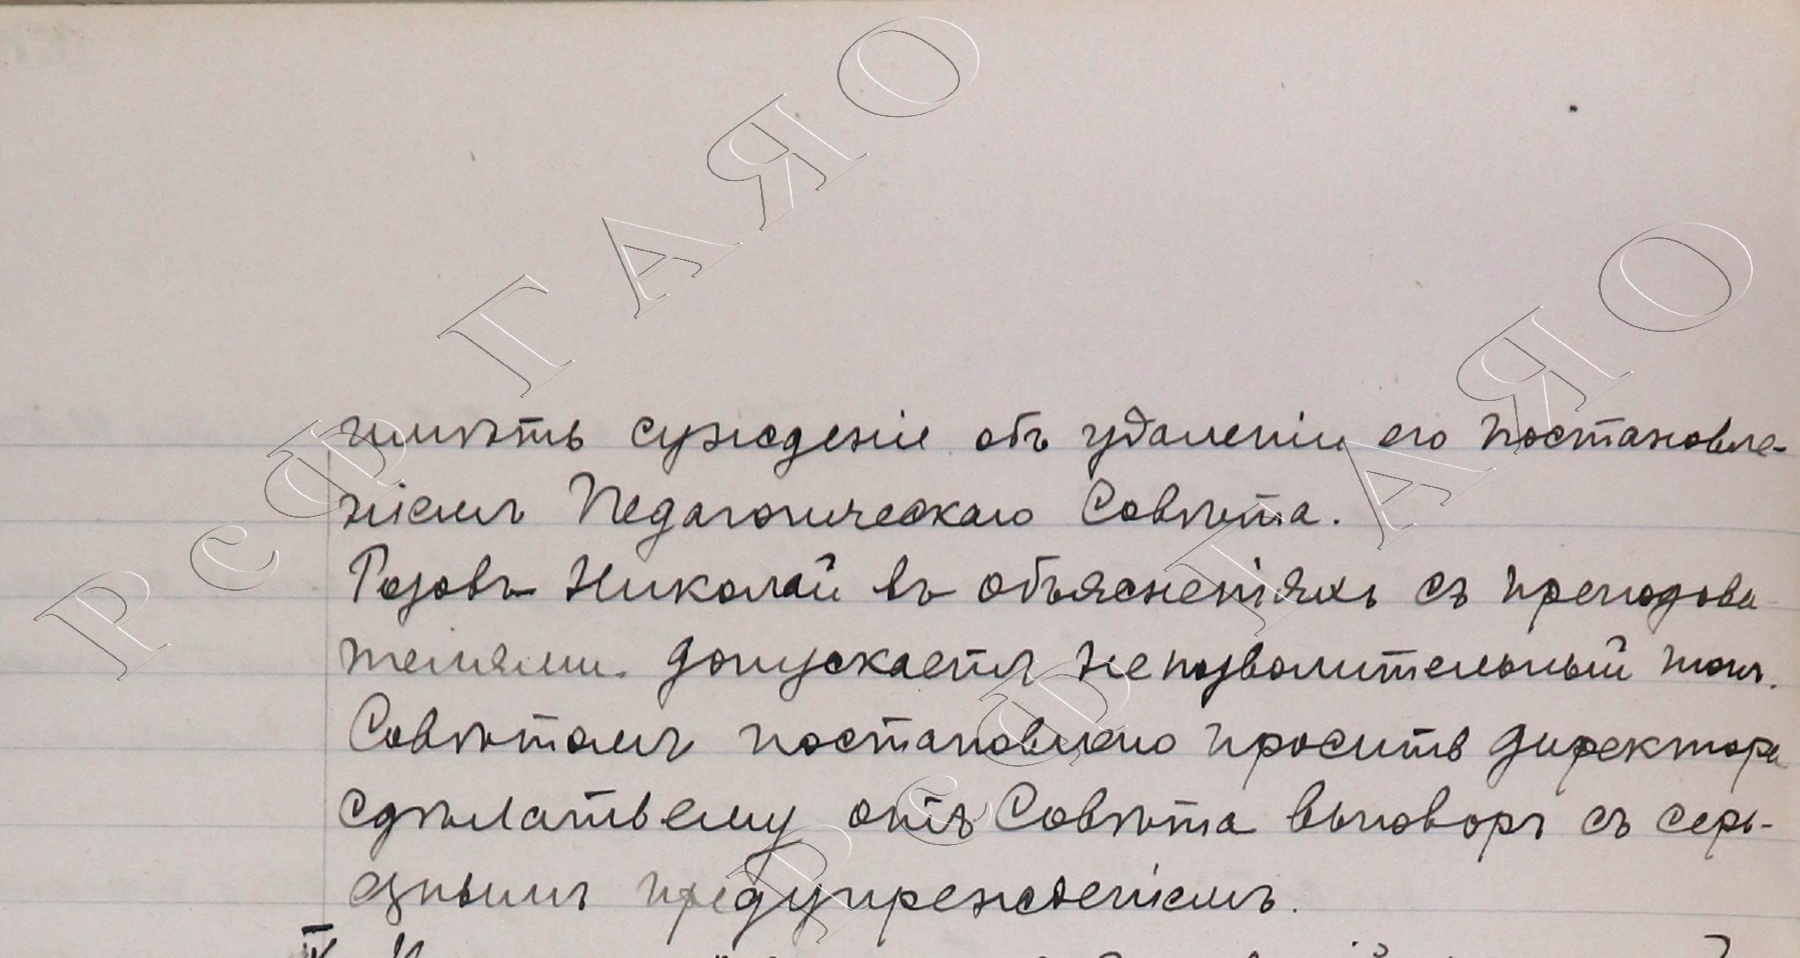 имѣть сужденіе объ удаленіи его постановле-
ніемъ Педагогическаго Совѣта.
Розовъ Николай въ объясненіяхъ съ преподова
телями допускаетъ непозволительный тонъ.
Совѣтомъ постановлено просить директора
сдѣлать ему отъ Совѣта выговоръ съ серь-
знымъ предупрежденіемъ.
РсФ ГАЯО
РсФ ГАЯО